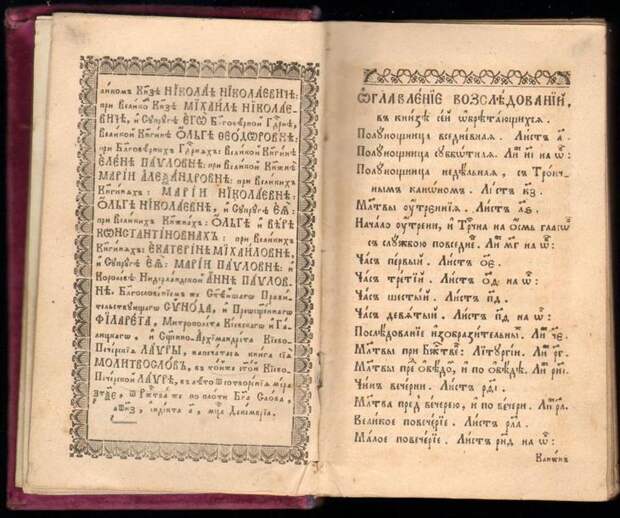 ликомъ Кнѕѣ НІКОЛАѢ НІКОЛАЕВИЧѢ:
при Великомъ Кнѕѣ МІХАИЛѢ НІКОЛАЕ-
ВИЧѢ, и Супругѣ ЕГѠ Благовѣрной Гдрнѣ,
Великой Кнгинѣ ОЛЬГѢ ѲЕОДѠРОВНѢ:
при Благовѣрныхъ Гдрняхъ: Великой Кнгинѣ
ЕЛЕНѢ ПАУЛОВНѢ: при Великой Кнжнѣ
МАРІИ АЛЕѮАНДРОВНѢ: при Великихъ
Кнгиняхъ: МАРІИ НІКОЛАЕВНѢ:
ОЛЬГѢ НІКОЛАЕВНѢ, и Супругѣ ЕѦ:
при Великихъ Кнжнахъ: ОЛЬГѢ и ВѢРѢ
КѠНСТАНТІНОВНАХЪ: при Великихъ
Кнгиняхъ: ЕКАТЕРІНѢ МІХАИЛОВНѢ,
и Супругѣ ЕѦ: МАРІИ ПАУЛОВНѢ: и
Королевѣ Нидерландской АННѢ ПАУЛОВ-
НѢ, Благословенїемъ же Стѣйшагѡ Прави-
тельствующагѡ СѴНОДА, и Преѡсщеннагѡ
ФІЛАРЕТА, Митрополіта Кїевскагѡ и Га-
лицкагѡ, и Сщенно-Архїмандріта Кїево-
Печерскїѧ ЛАѴРЫ, напечатасѧ книга сїѧ
МОЛИТВОСЛОВЪ, въ тойже стой Кїево-
Печерской ЛАѴРѢ, въ лѣто ѿ сотворенїѧ мїра
ѿ Ржтва же по плоти Бга Слова,
індікта мца Декемврїа.
Ѡ҆ГЛАВЛЕНЇЕ ВОЗСЛѢДОВАНЇЙ,
въ книзѣ сей ѡбрѣтающихсѧ.
Полꙋнощница вседневнаѧ. Листъ а҃.
Полꙋнощница сꙋббѡтнаѧ. Ли҃ и҃і на ѡ҃:
Полꙋнощница недѣльнаѧ, съ Троич-
нымъ канѡномъ. Листъ к҃з.
Млтвы ᲂу҆треннїѧ. Листъ л҃е.
Начало ᲂу҆трени, и Трчна на осмь гласѡвъ
съ слꙋжбою повседне. Ли҃ м҃г на ѡ҃:
Часъ первый. Листъ о҃е.
Часъ третїй. Листъ о҃д на ѡ҃:
Часъ шестый. Листъ п҃д.
Часъ девѧтый. Листъ п҃д на ѡ҃:
Послѣдованїе изобразительны. Ли҃ ч҃е.
Млтвы при Бжтве: Лїтꙋргїи. Ли҃ р҃г.
Млтвы пре ѡбѣдо, и по ѡбѣдѣ. Ли҃ р҃ні.
Чинъ вечерни. Листъ р҃ді.
Млтва пред вечерею, и по вечери. Ли҃ р҃л.
Великое повечерїе. Листъ р҃ла.
Малое повечерїе. Листъ р҃нд на ѡ҃:
Канѡн